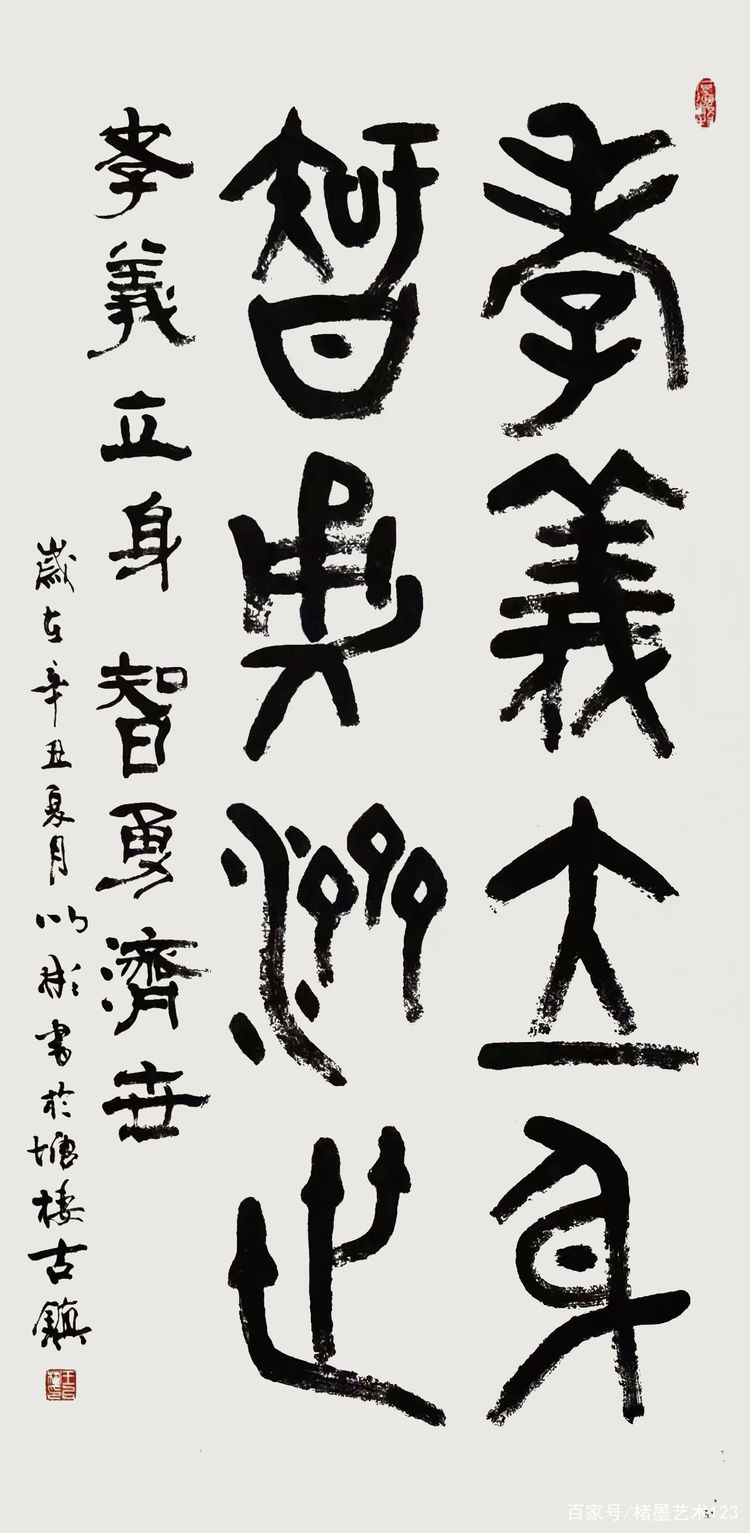 孝義立身
智勇濟世
孝義立身智勇濟世
歲在辛丑夏月明彬書於塘棲古鎮
百家号/楮墨艺术123